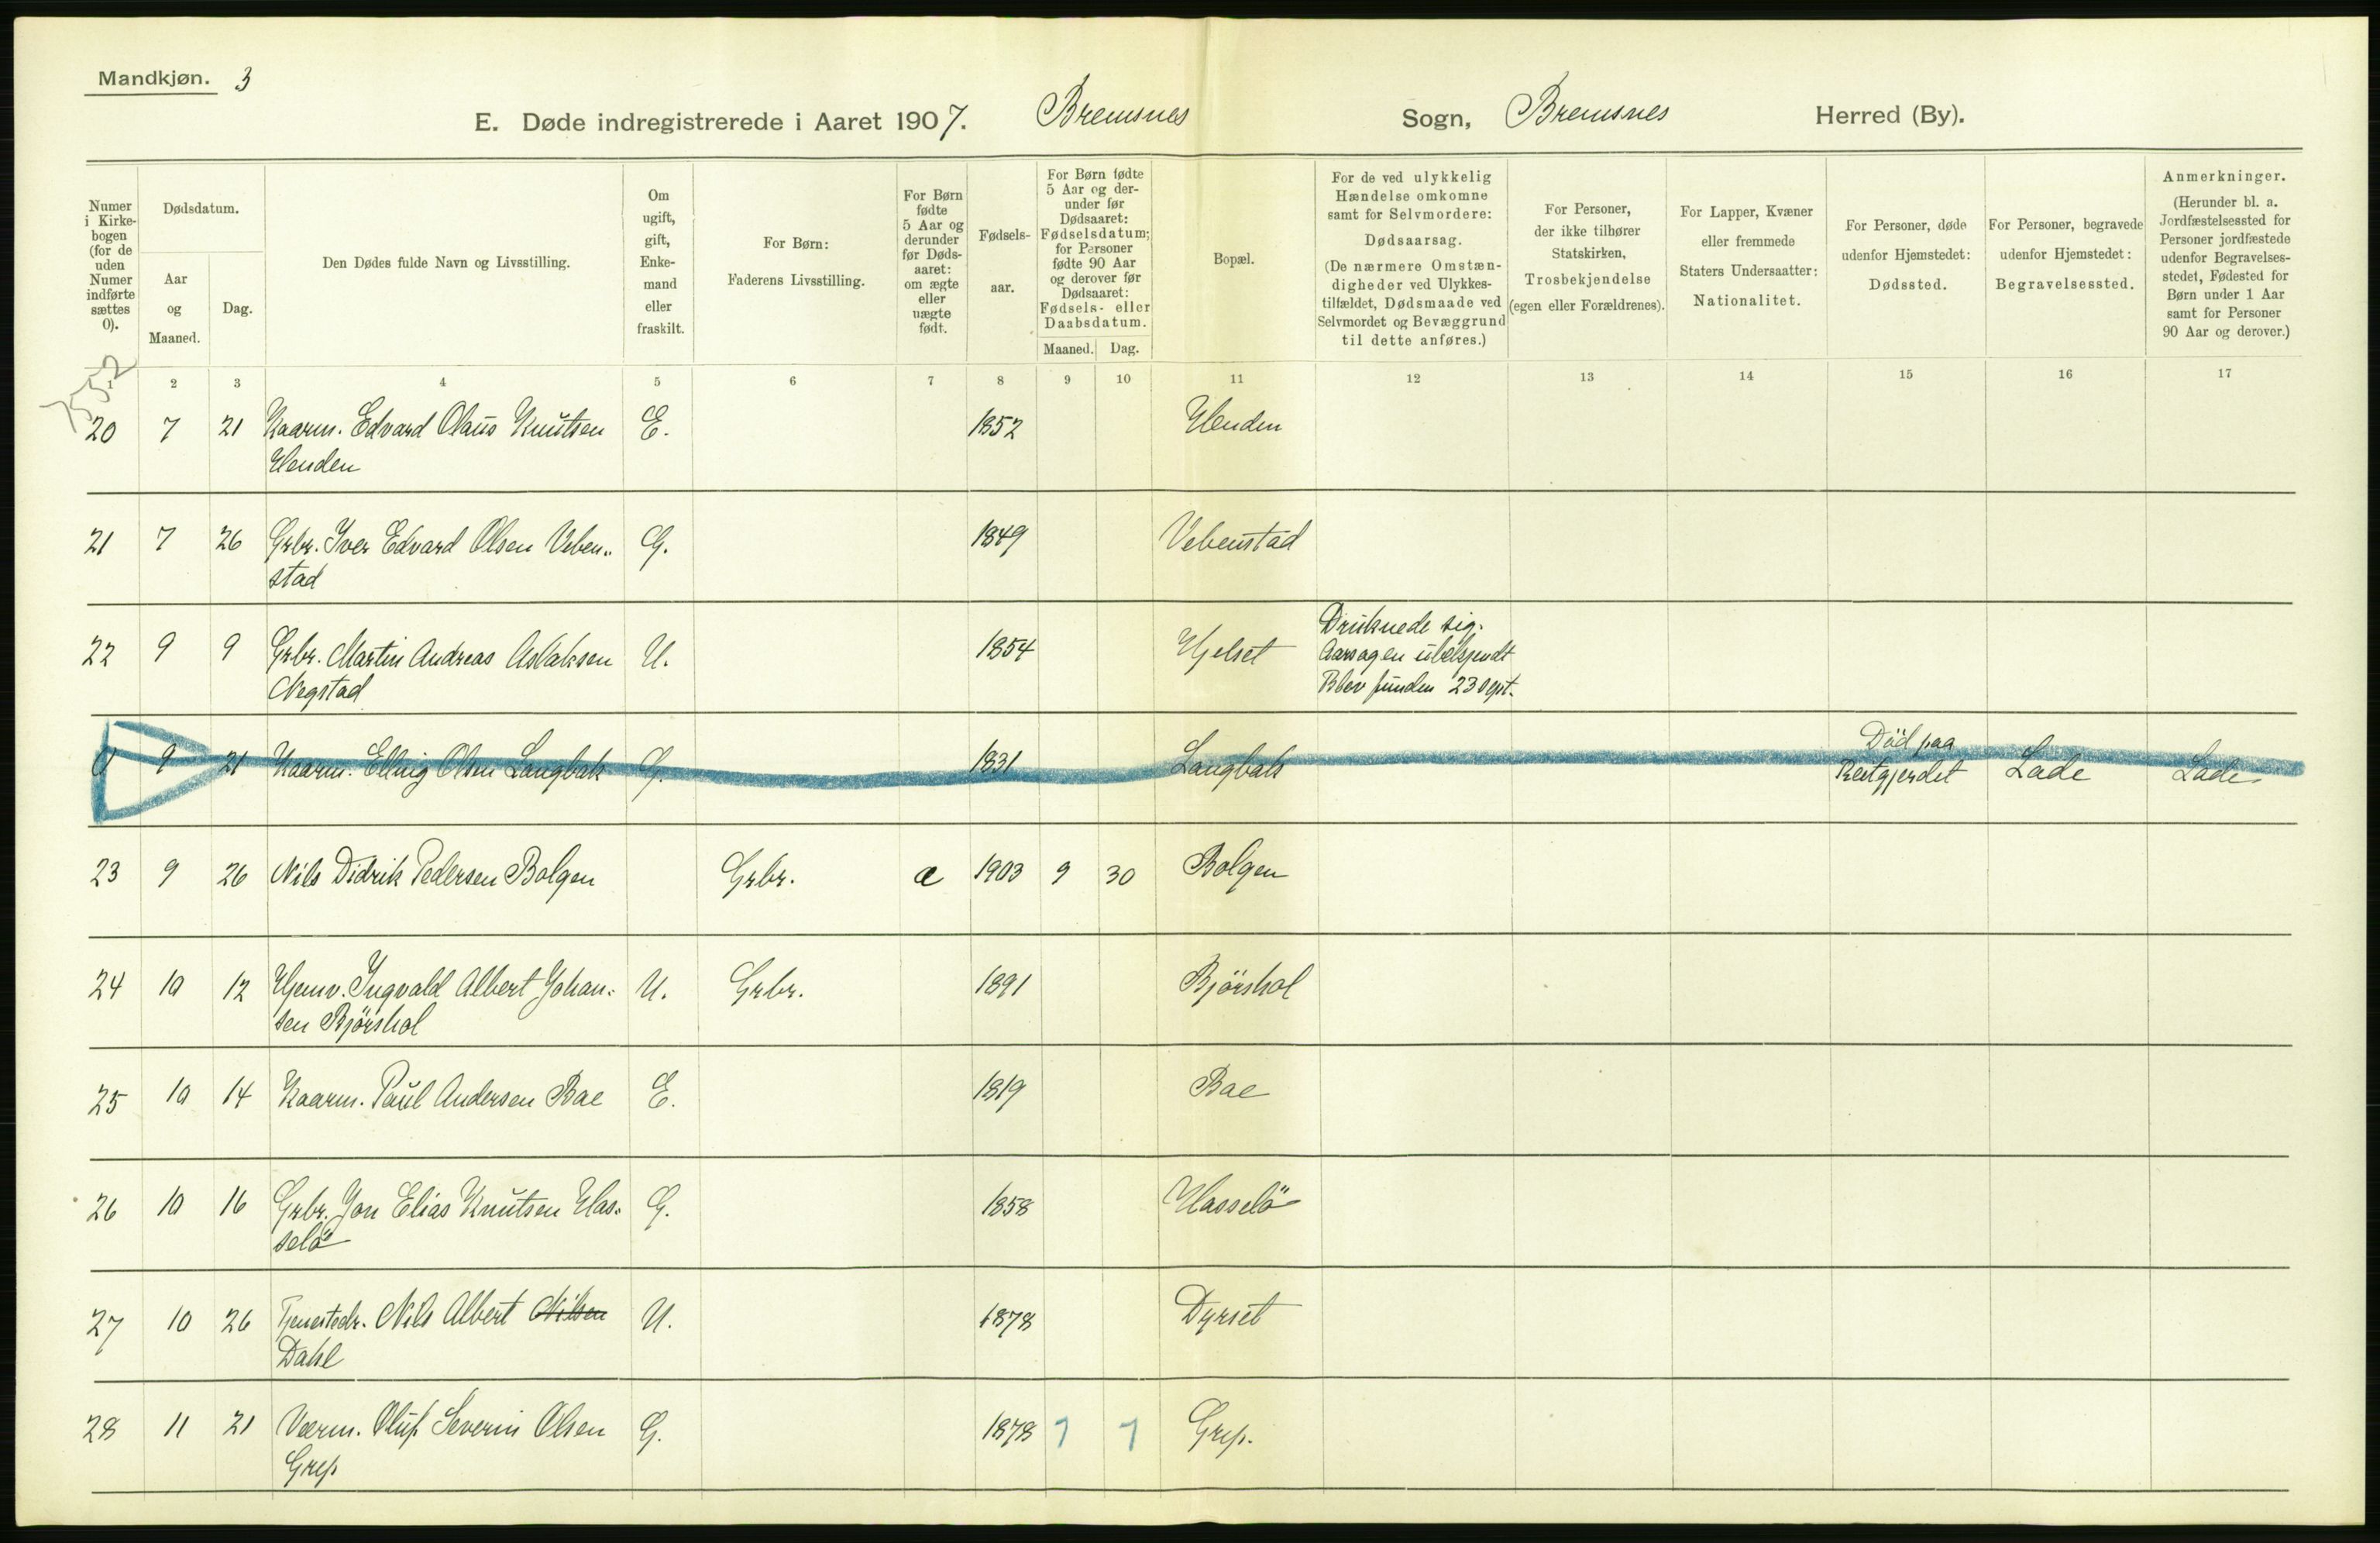 Mandkjøn. 3
E. Døde indregistrerede i Aaret 1907. Bremsnes Sogn, Bremsnes Herred (By).
Numer
i Kirke-
bogen
(for de
uden
Numer
indførte
sættes
0).
Dødsdatum.
Aar
og
Maaned.
Dag.
Den Dødes fulde Navn og Livsstilling.
Om
ugift,
gift,
Enke-
mand
eller
fraskilt.
For Børn:
Faderens Livsstilling.
For Børn
fødte
5 Aar og
derunder
før Døds-
aaret:
om ægte
eller
uægte
født.
Fødsels-
aar.
For Børn fødte
5 Aar og der-
under før
Dødsaaret:
Fødselsdatum;
for Personer
fødte 90 Aar
og derover før
Dødsaaret:
Fødsels- eller
Daabsdatum.
Maaned. Dag.
Bopæl.
For de ved ulykkelig
Hændelse omkomne
samt for Selvmordere:
Dødsaarsag.
(De nærmere Omstæn-
digheder ved Ulykkes-
tilfældet, Dødsmaade ved
Selvmordet og Bevæggrund
til dette anføres.)
For Personer,
der ikke tilhører
Statskirken,
Trosbekjendelse
(egen eller Forældrenes).
For Lapper, Kvæner
eller fremmede
Staters Undersaatter:
Nationalitet.
For Personer, døde
udenfor Hjemstedet:
Dødssted.
For Personer, begravede
udenfor Hjemstedet:
Begravelsessted.
Anmerkninger.
(Herunder bl. a.
Jordfæstelsessted for
Personer jordfæstede
udenfor Begravelses-
stedet, Fødested for
Børn under 1 Aar
samt for Personer
90 Aar og derover.)
1 2 3 4 5 6 7 8 9 10 11 12 13 14 15 16 17
20 7 21 Kaarm. Edvard Olaus Knutsen E. 1852 Henden
Henden
21 7 26 Grbr. Iver Edvard Olsen Veben- G. 1849 Vebenstad
stad
22 9 9 Grbr. Martin Andreas Aslaksen U. 1854 Hjelset Druknede sig.
Negstad Aarsagen ubekjendt
Blev funden 23
0 9 21 Kaarm. Olsen Langbak G. 1831 Langbak Død paa
Reitgjerdet Lade Lade
23 9 26 Nils Didrik Pedersen Bolgen Grbr. æ 1903 9 30 Bolgen
24 10 12 Hjemv. Ingvald Albert Johan- U. Grbr. 1891 Bjørshol
sen Bjørshol
25 10 14 Kaarm. Paul Andersen Bae E. 1819 Bae
26 10 16 Grbr. Jon Elias Knutsen Has- G. 1858 Hasselö
selö
27 10 26 Tjenestedr. Nils Albert Nilsen U. 1878 Dyrset
Dahl
28 11 21 Værm. Oluf Severin Olsen G. 1878 7 7 Grip.
Grip